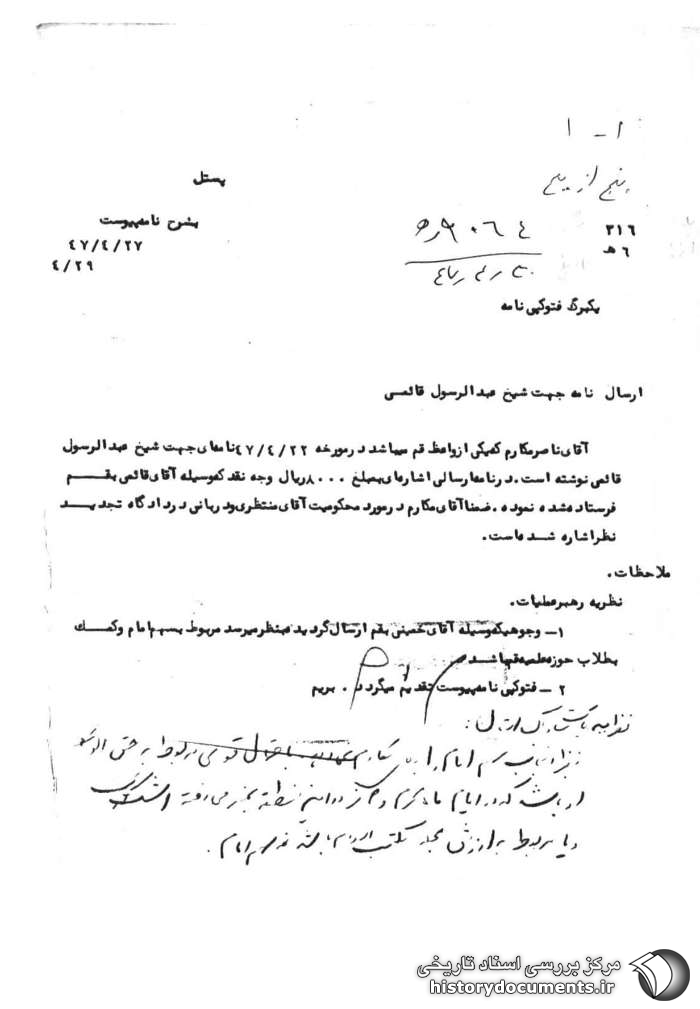 ۱ - ۱
پنج از پنج
پستل
۳۱۶
بشرح نامه پیوست
۶ هـ
۴۷/۴/۲۷
۴/۲۹
یکبرگ فتوکپی نامه
ارسال نامه جهت شیخ عبدالرسول قائمی
آقای ناصر مکارم که یکی از وعاظ قم میباشد در مورخه ۴۷/۴/۲۲ نامه‌ای جهت شیخ عبدالرسول
قائمی نوشته است. در نامه ارسالی اشاره‌ای بمبلغ ۸۰۰۰ ریال وجه نقد که وسیله آقای قائمی بقم
فرستاده شده نموده. ضمنا آقای مکارم در مورد محکومیت آقای منتظری و ربانی در دادگاه تجدید
نظر اشاره شده است.
ملاحظات.
نظریه رهبر عملیات.
۱- وجوهیکه وسیله آقای خمینی بقم ارسال گردید بنظر میرسد مربوط بسهم امام و کمک
بطلاب حوزه علمیه قم باشد
۲- فتوکپی نامه پیوست تقدیم میگردد. بریم
سهم امام
مربوط به حق
او باشد که در ایام محرم
و یا مربوط به ارزش مجله مکتب اسلام باشد نه سهم امام.
مرکز بررسی اسناد تاریخی
historydocuments.ir